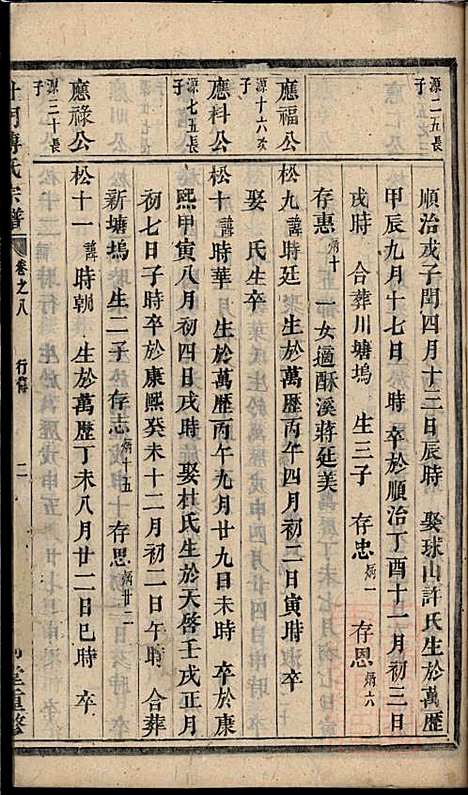 源二五長子
順治戊子閏四月十三日辰時 娶球山許氏生於萬歷
甲辰九月十七日 時 卒於順治丁酉十一月初三日
戌時 合葬川塘塢 生三子 存忠炳一 存恩炳六
存惠炳十 一女適酥溪蔣廷美
應福公
源十六次子
松九諱時廷 生於萬歷丙午四月初二日寅時 卒
娶 氏生卒
應科公
源七五長子
松十諱時華 生於萬歷丙午九月廿九日未時 卒於康
熙甲寅八月初四日戌時 娶杜氏生於天啓壬戌正月
初七日子時卒於康熙癸未十二月初二日午時 合葬
新塘塢 生二子 存志炳十五 存思炳廿二
應祿公
源三十長子
松十一諱時朝 生於萬歷丁未八月廿二日巳時 卒
氏宗譜 卷之八 行傳 二 堂重修